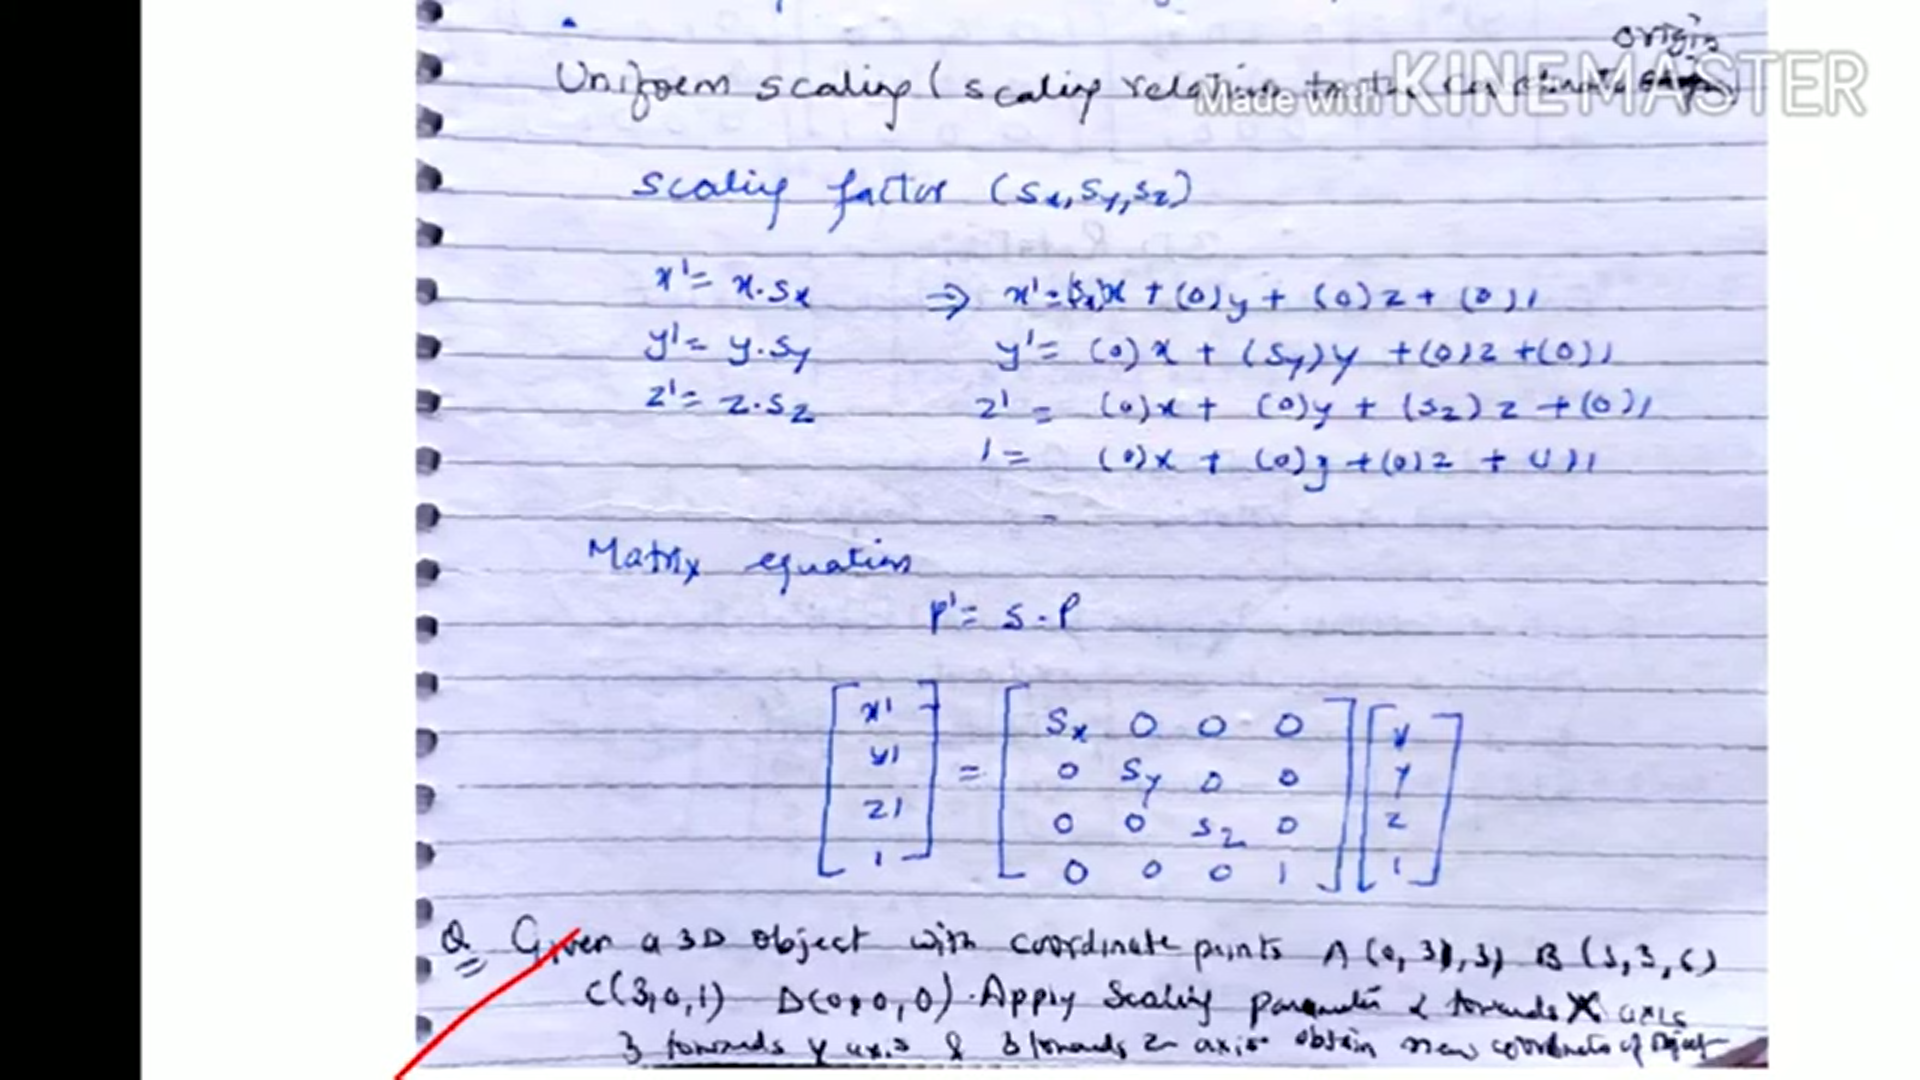 origin
Uniform scaling (scaling relation to the coordinate
Made with KINEMASTER
Scaling factor (Sx, Sy, Sz)
x' = x.Sx ⇒ x' = (Sx)x + (0)y + (0)z + (0)1
y' = y.Sy y' = (0)x + (Sy)y + (0)z + (0)1
z' = z.Sz z' = (0)x + (0)y + (Sz)z + (0)1
1 = (0)x + (0)y + (0)z + (1)1
Matrix equation
P' = S.P
[x' y' z' 1] = [Sx 0 0 0
0 Sy 0 0
0 0 Sz 0
0 0 0 1] [x y z 1]
Q Given a 3D object with coordinate points A(0, 3, 3) B(3, 3, 6)
C(3, 0, 1) D(0, 0, 0). Apply Scaling parameter 2 towards X axis
3 towards y axis & 3 towards z axis obtain new coordinate of object